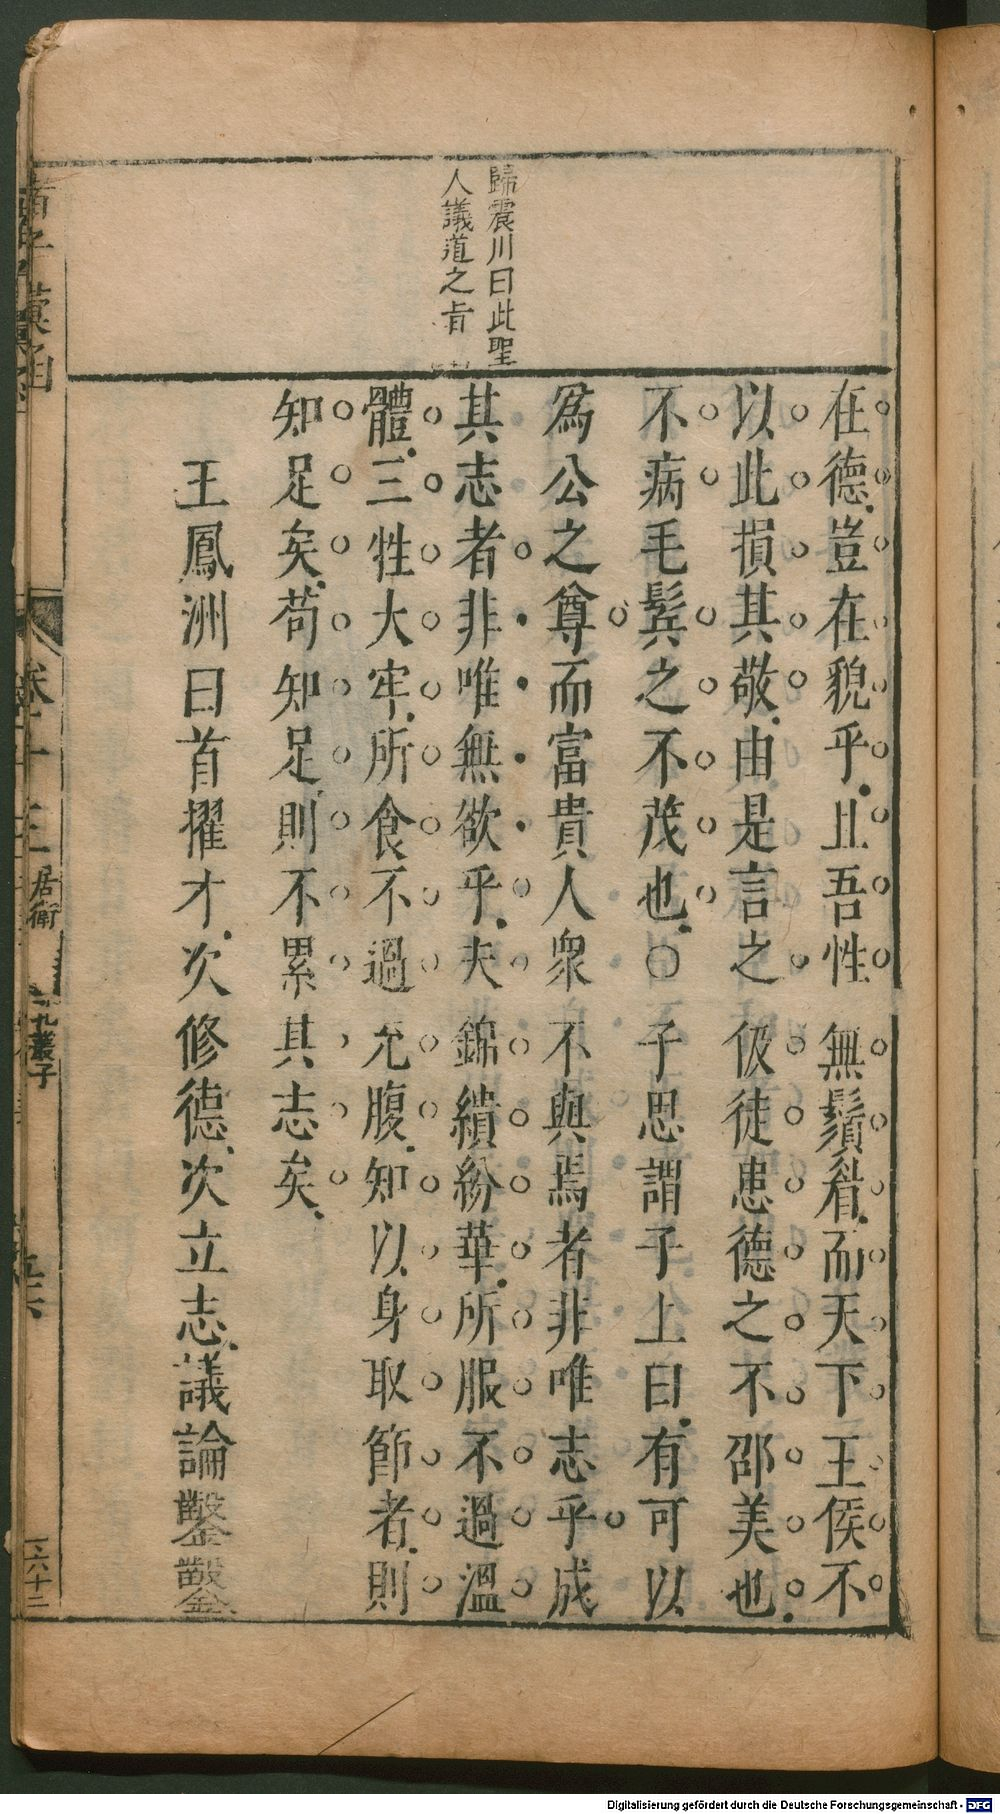 歸震川曰此聖
人議道之旨
在德豈在貌乎且吾性無鬚眉而天下王侯不
以此損其敬由是言之伋徒患德之不邵美也
不病毛髮之不茂也〇子思謂子上曰有可以
為公之尊而富貴人眾不與焉者非唯志乎成
其志者非唯無欲乎夫錦繢紛華所服不過溫
體三牲大牢所食不過充腹知以身取節者則
知足矣苟知足則不累其志矣
王鳳洲曰首擢才次修德次立志議論鑿鑿
諸子彙函
卷十三
居衛
孔叢子
六十三
Digitalisierung gefördert durch die Deutsche Forschungsgemeinschaft - DFG